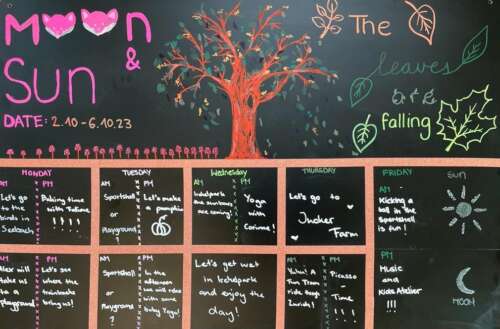 Moon
&
Sun
DATE: 2.10 - 6.10.23
The
leaves
are
falling
MONDAY
AM
PM
Let's go
to the
birds in
Seebach
Baking time
with Fatime
!!!!
TUESDAY
AM
PM
Sportshall
or
Playground
?
Let's make
a pumpkin
Wednesday
AM
PM
Irchelpark
the sunteam
are coming!
Yoga
with
Corinne!
THURSDAY
Let's go to
Jucker
Farm
FRIDAY
SUN
AM
Kicking a
ball in the
Sportshall
is fun!
AM
PM
Alex will
take us
to a
playground
Let's see
where the
traintracks
bring us!
AM
PM
Sportshall
or
Playground
?
In the
afternoon
we will relax
with some
baby Yoga!
Let's get wet
in Irchelpark
and enjoy the
day!
AM
PM
Yuhu! A
Thin Tram
ride through
Zurich!
Picasso
-
Time
!!!
PM
Music
and
Kids Atelier
!!!
MOON